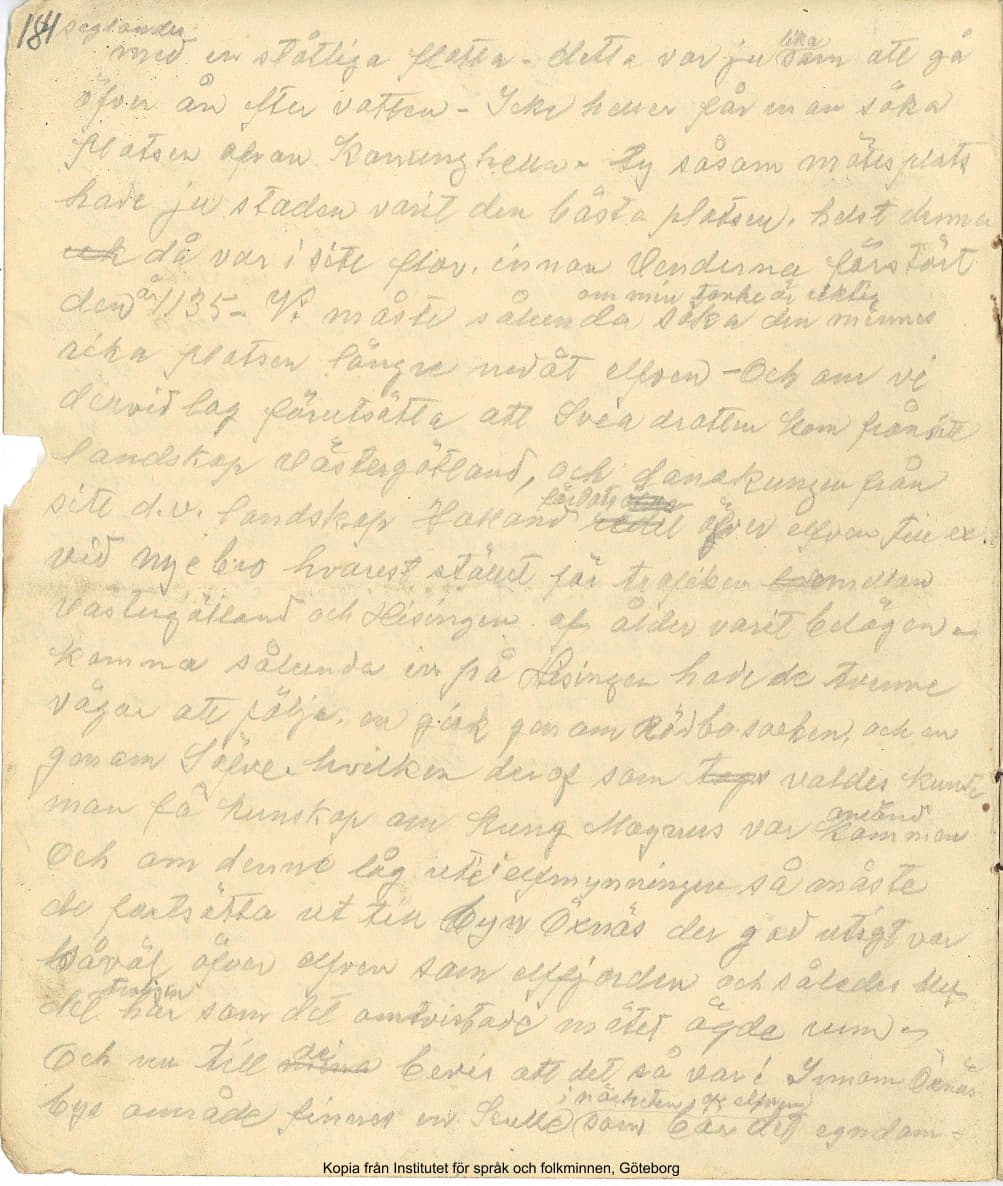 184
seglandes
med en ståtliga flotta - detta var ju lika som att gå
öfver ån efter vatten - Icke heller får man söka
platsen ofvan Konunghella - ty såsom mötesplats
hade ju staden varit den bästa platsen, helst denna
då var i sitt flor, innan Venderna förstört
den år 1135 - Vi måste sålunda om min tanke är riktig söka den minnes
rika platsen längre nedåt elfven - Och om vi
dervid lag förutsätta att Svea drotten kom från sitt
landskap Västergötland, och Danakungen från
sitt d.v. landskap Halland öfver elfven till ex.
vid Nyebro hvarest stället för trafiken emellan
Västergötland och Hisingen af ålder varit belägen -
komna sålunda in på Hisingen hade de tvenne
vägar att följa, en gick genom Rödbo socken, och en
genom Säfve - hvilken deraf som valdes kunde
man få kunskap om Kung Magnus var ankommen
Och om denne låg ute i elfmynningen så måste
de fortsätta ut till byn Öxnäs der god utsigt var
såväl öfver elfven som elffjorden och således blef
det här som det omtvistade mötet ägde rum -
Och nu till de bevis att det så var! Innom Öxnäs
bys område finnes en kulle (i närheten af elfven) som bär det egendom-
Kopia från Institutet för språk och folkminnen, Göteborg